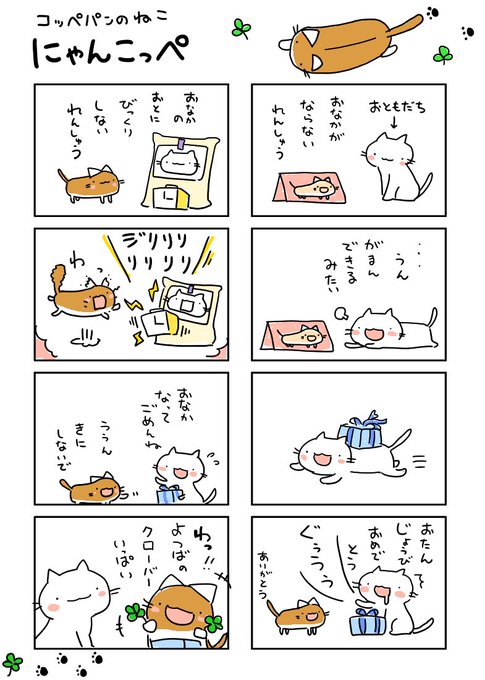 コッペパンのねこ
にゃんこっぺ
おともだち
おなかが
ならない
れんしゅう
…うん
がまん
できる
みたい
おたん
じょうび
おめで
とう
ぐぅぅぅ
ありがとう
おなか
の
おとに
びっくり
しない
れんしゅう
ジリリリ
リリリリ
わっ
おなか
なって
ごめんね
ううん
きに
しないで
わっ!!
よつばの
クローバー
いっぱい